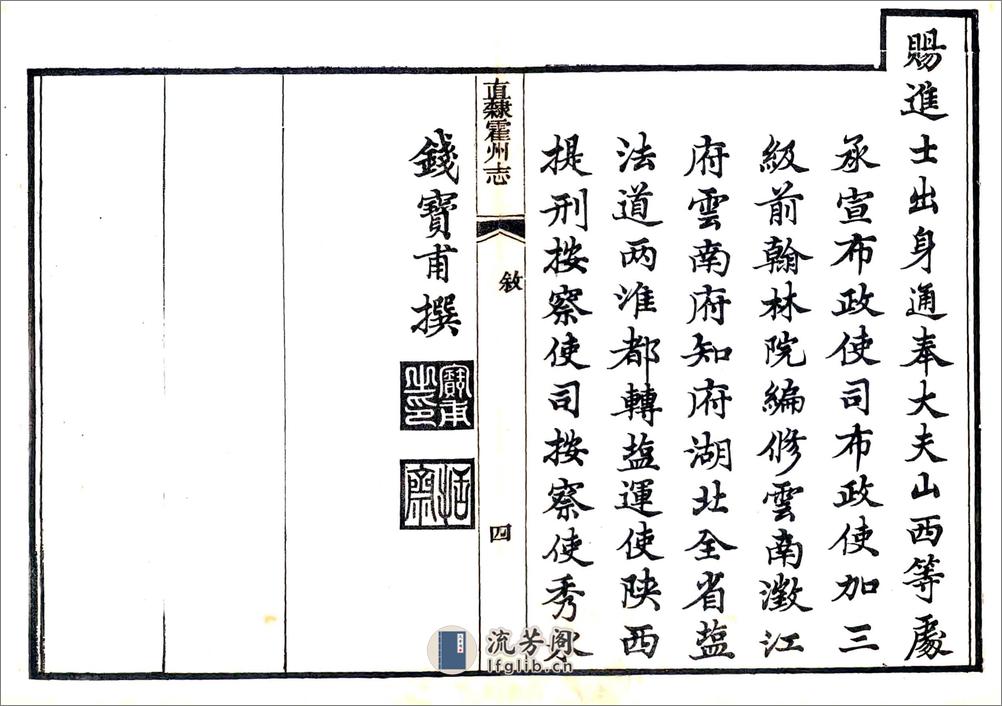 賜進士出身通奉大夫山西等處
承宣布政使司布政使加三
級前翰林院編修雲南澂江
府雲南府知府湖北全省盐
法道两淮都轉盐運使陕西
提刑按察使司按察使秀水
直隸霍州志
敘
四
錢寶甫撰
寶甫之印
恬齋
流芳阁
lfglib.cn